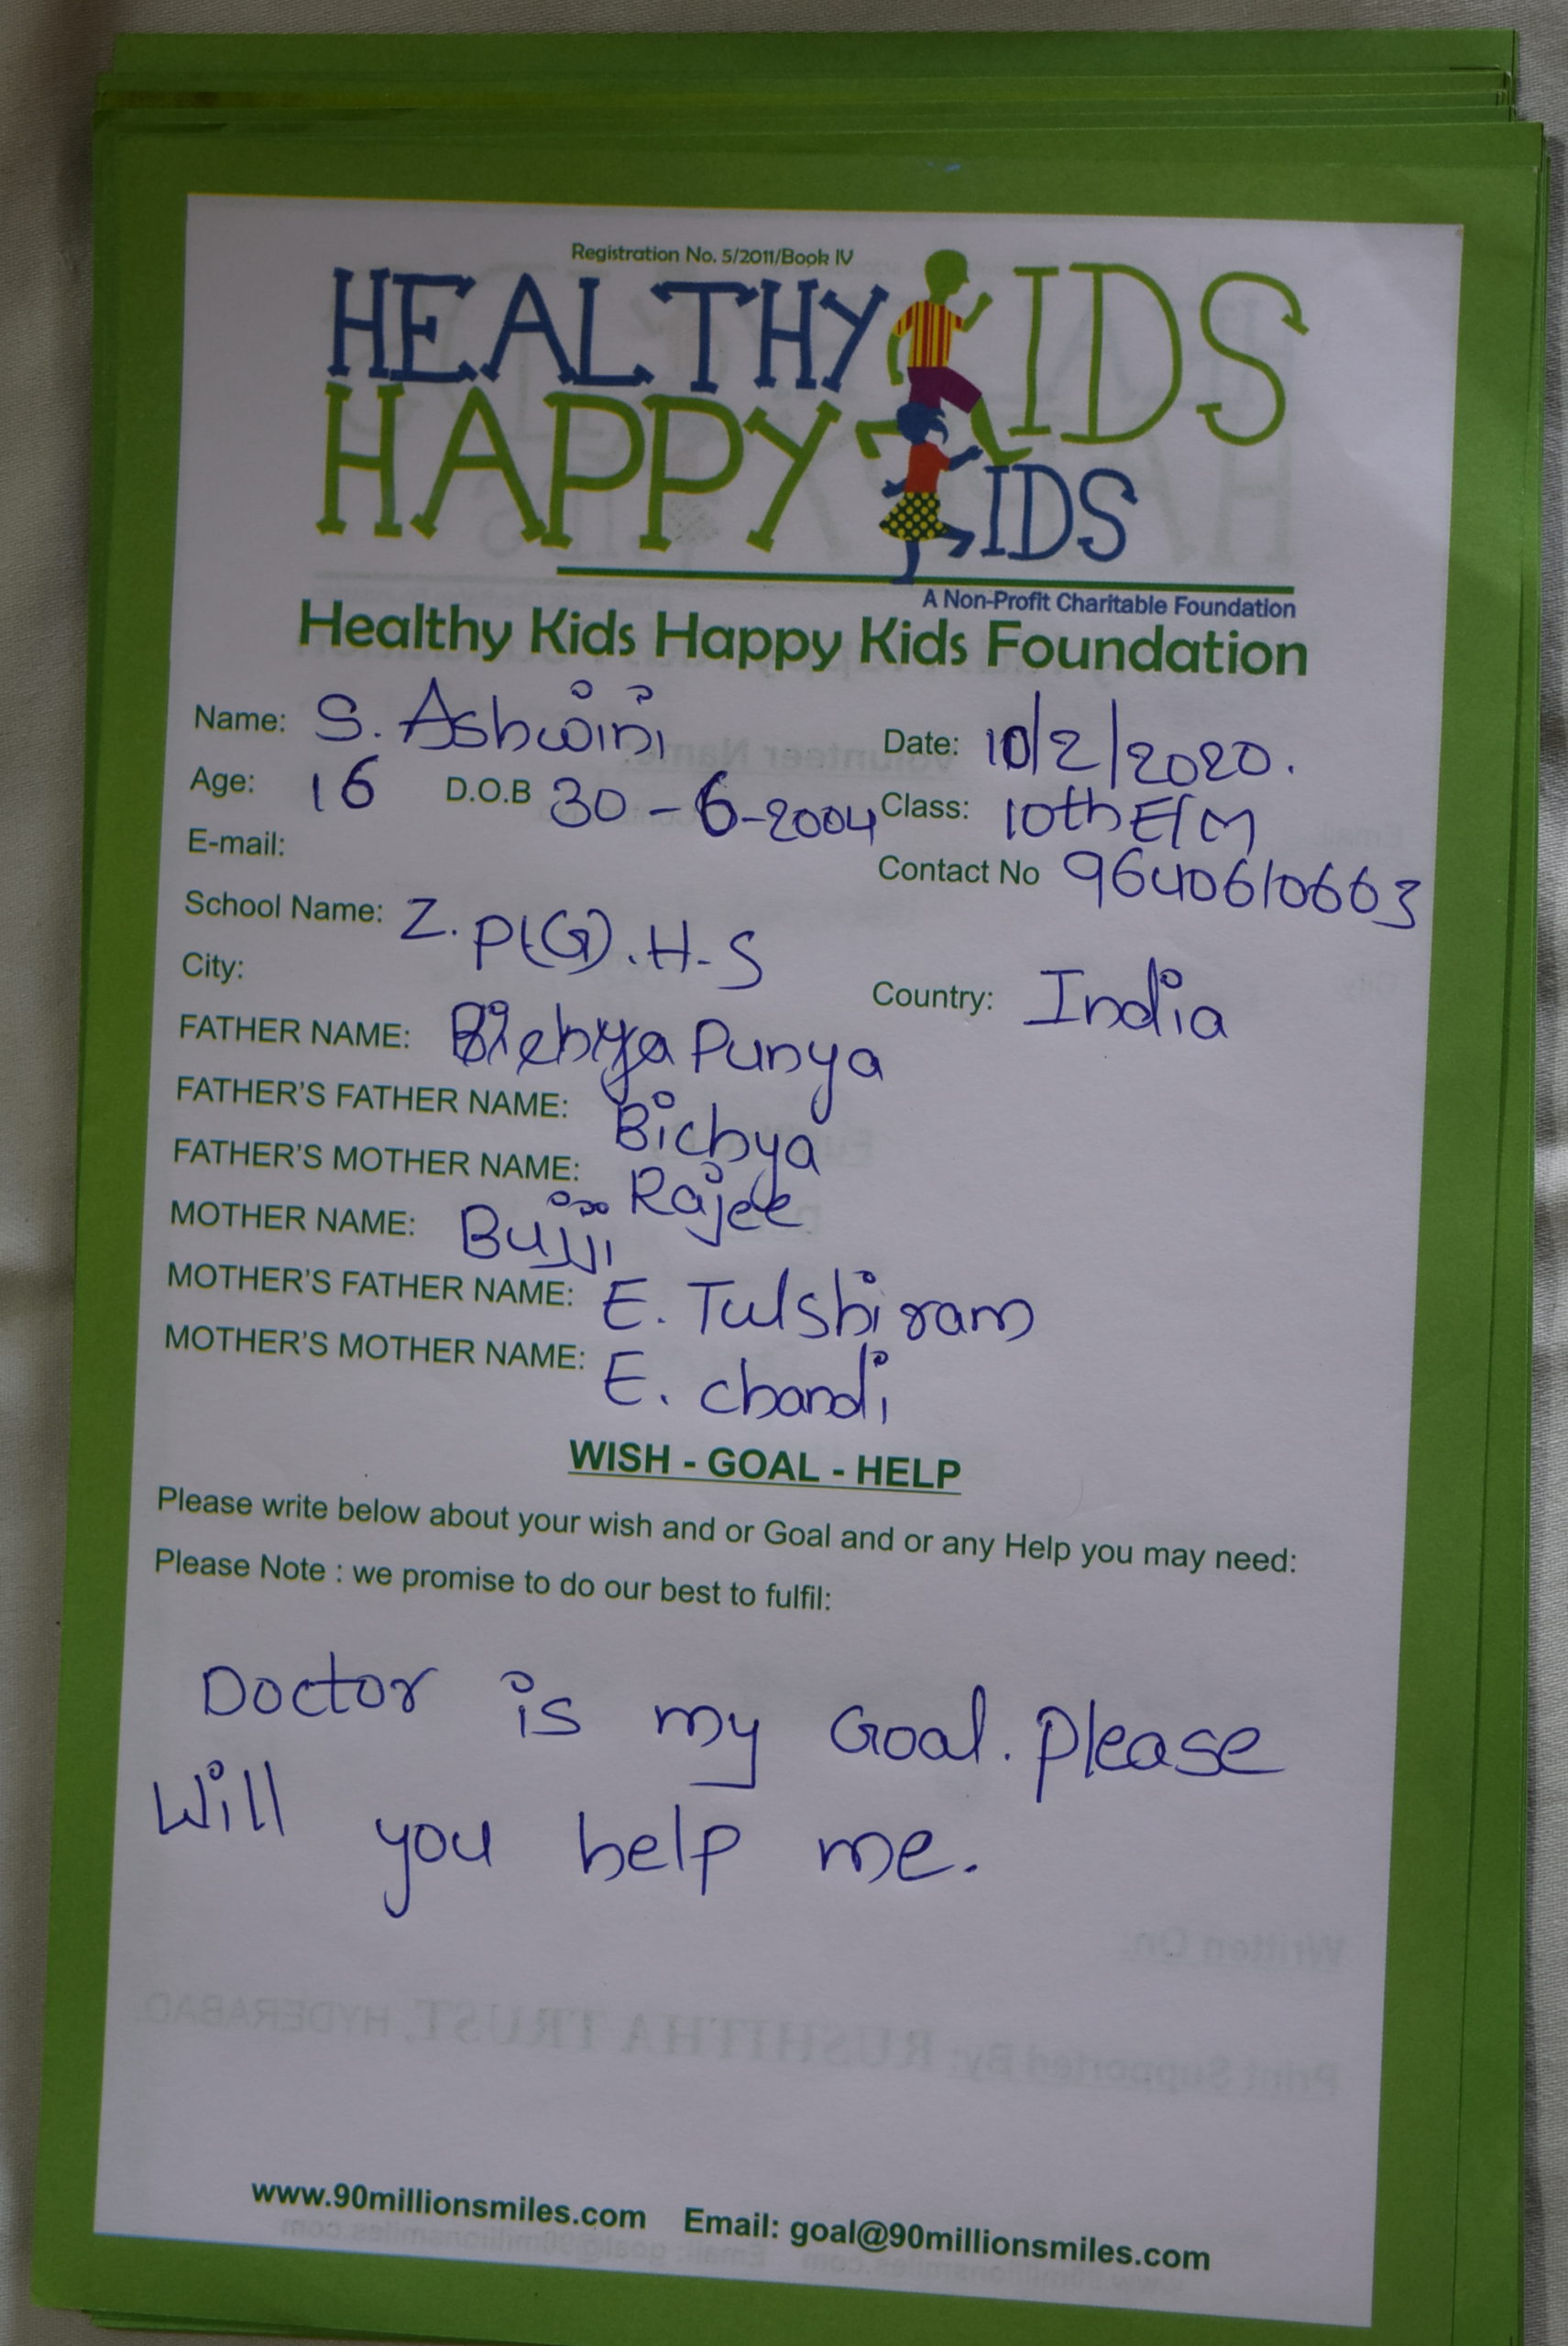 Registration No. 5/2011/Book IV
HEALTHY KIDS
HAPPY KIDS
A Non-Profit Charitable Foundation
Healthy Kids Happy Kids Foundation
Name: S. Ashwini Date: 10/2/2020.
Age: 16 D.O.B 30-6-2004 Class: 10th E/M
E-mail: Contact No 9640610663
School Name: Z. P(G). H-S
City: Country: India
FATHER NAME: Punya
FATHER'S FATHER NAME: Bichya
FATHER'S MOTHER NAME: Rajee
MOTHER NAME: Bujji
MOTHER'S FATHER NAME: E. Tulshiram
MOTHER'S MOTHER NAME: E. chandi
WISH - GOAL - HELP
Please write below about your wish and or Goal and or any Help you may need:
Please Note : we promise to do our best to fulfil:
Doctor is my Goal. please
Will you help me.
Written On:
Print Supported By: RUSHITHA TRUST, HYDERABAD.
www.90millionsmiles.com Email: goal@90millionsmiles.com